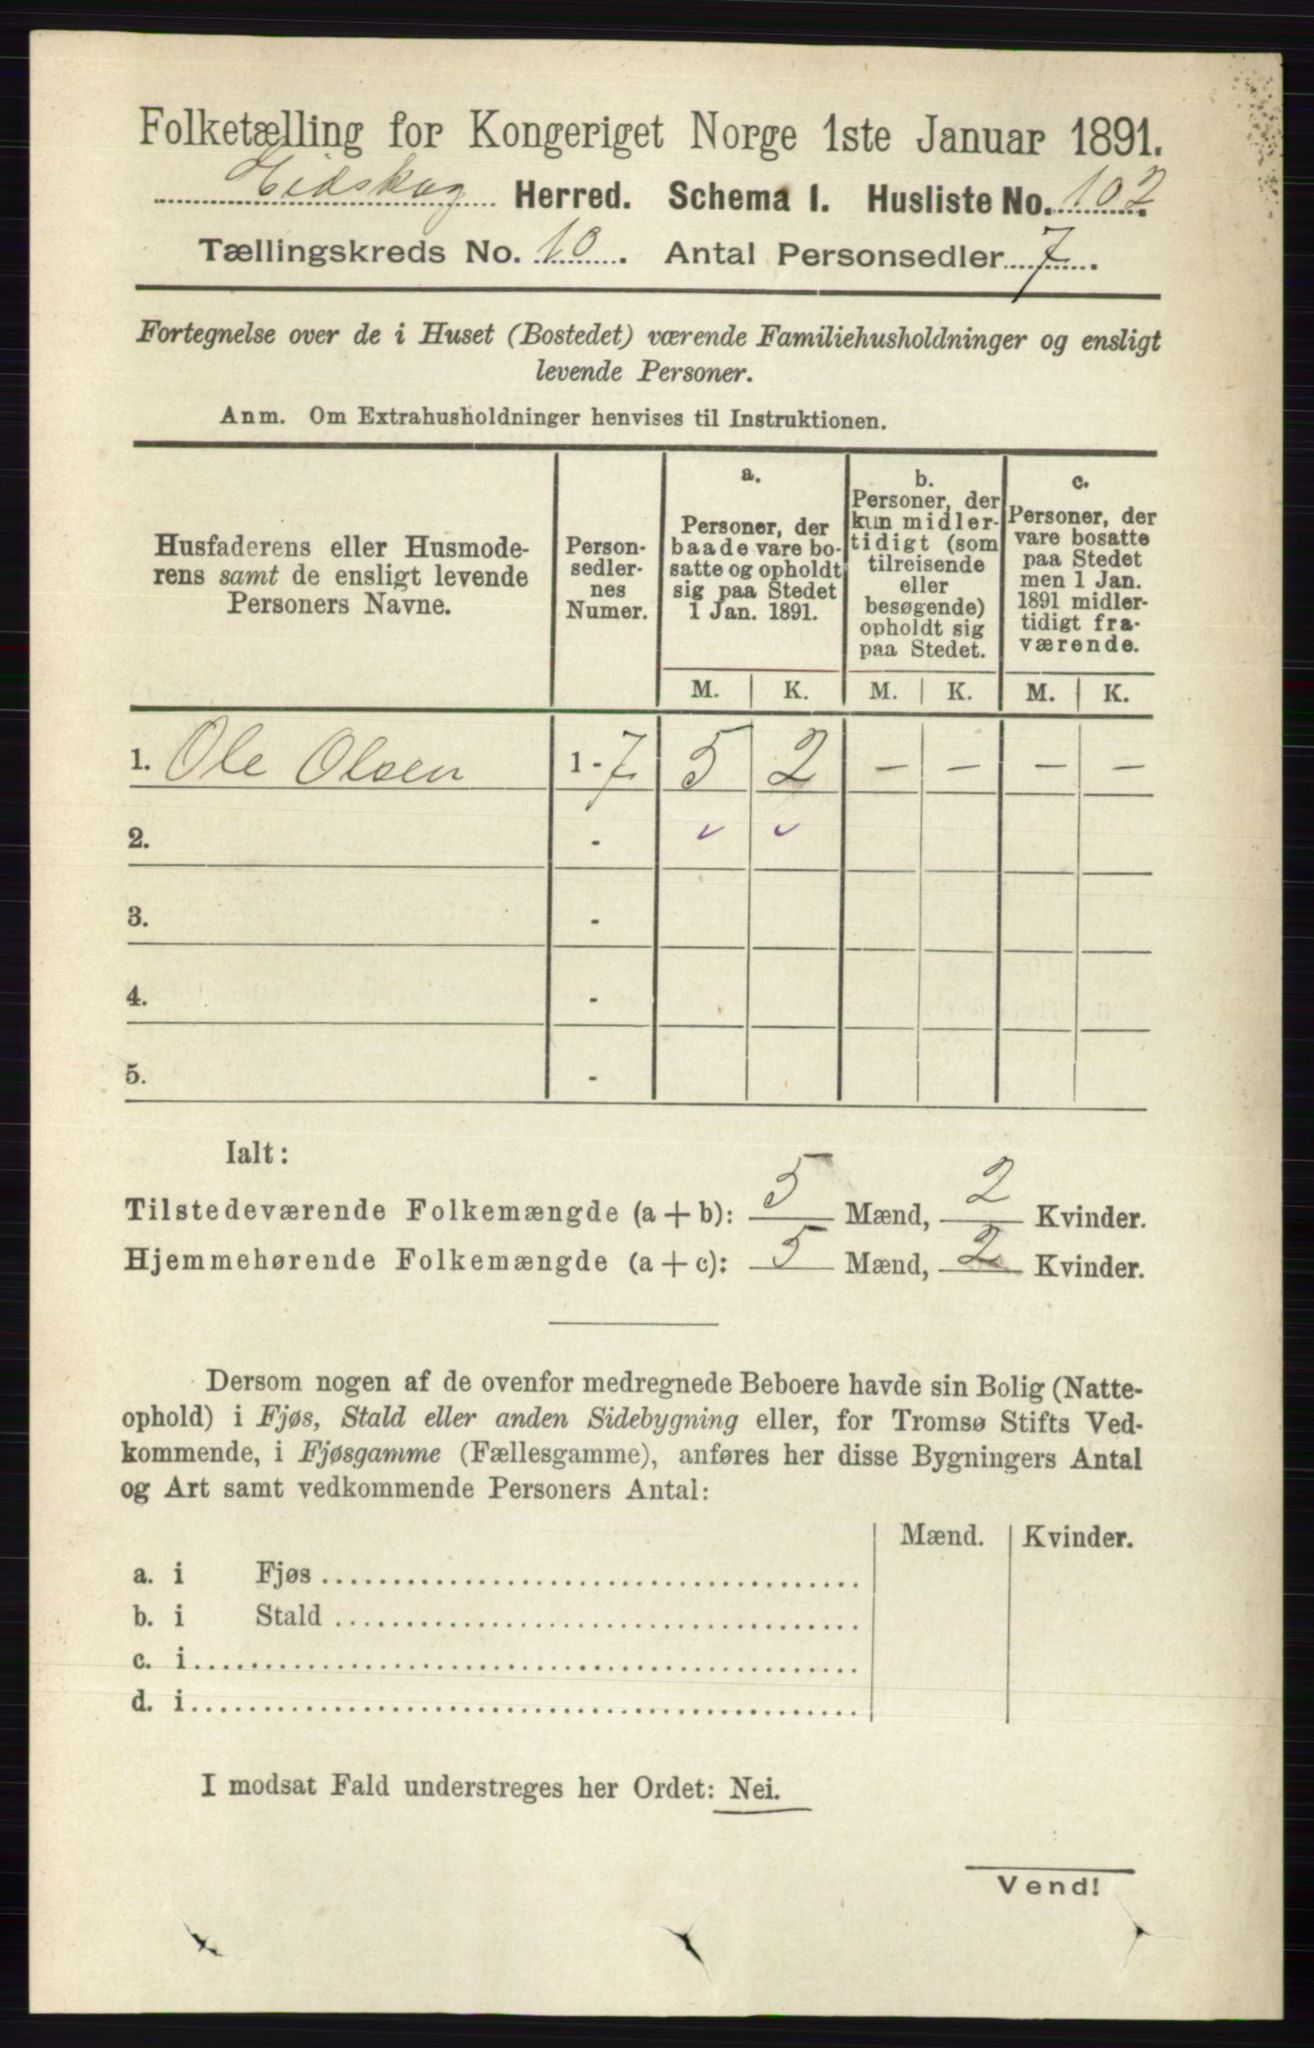 Folketælling for Kongeriget Norge 1ste Januar 1891.
Eidskog Herred. Schema I. Husliste No. 102.
Tællingskreds No. 10. Antal Personsedler 7.
Fortegnelse over de i Huset (Bostedet) værende Familiehusholdninger og ensligt
levende Personer.
Anm. Om Extrahusholdninger henvises til Instruktionen.
Husfaderens eller Husmode-
rens samt de ensligt levende
Personers Navne.
Person-
sedler-
nes
Numer.
a.
Personer, der
baade vare bo-
satte og opholdt
sig paa Stedet
1 Jan. 1891.
b.
Personer, der
kun midler-
tidigt (som
tilreisende
eller
besøgende)
opholdt sig
paa Stedet.
c.
Personer, der
vare bosatte
paa Stedet
men 1 Jan.
1891 midler-
tidigt fra-
værende.
M. K. M. K. M. K.
1. Ole Olsen 1 - 7 5 2 — — — —
2. -
3. -
4. -
5. -
Ialt:
Tilstedeværende Folkemængde (a + b): 5 Mænd, 2 Kvinder.
Hjemmehørende Folkemængde (a + c): 5 Mænd, 2 Kvinder.
Dersom nogen af de ovenfor medregnede Beboere havde sin Bolig (Natte-
ophold) i Fjøs, Stald eller anden Sidebygning eller, for Tromsø Stifts Ved-
kommende, i Fjøsgamme (Fællesgamme), anføres her disse Bygningers Antal
og Art samt vedkommende Personers Antal:
Mænd. Kvinder.
a. i Fjøs
b. i Stald
c. i
d. i
I modsat Fald understreges her Ordet: Nei.
Vend!